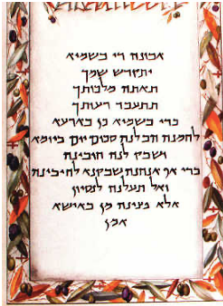 אבונה די בשמיא
יתקדש שמך
תאתה מלכותך
תתעבד רעותך
כדי בשמיא כן בארעא
לחמנה הבלנה סכום יום ביומא
ושבק לנה חובינה
כדי אף אנחנה שבקנא לחיבינה
ואל תעלנה לנסיון
אלא פצינה מן באישא
אמן